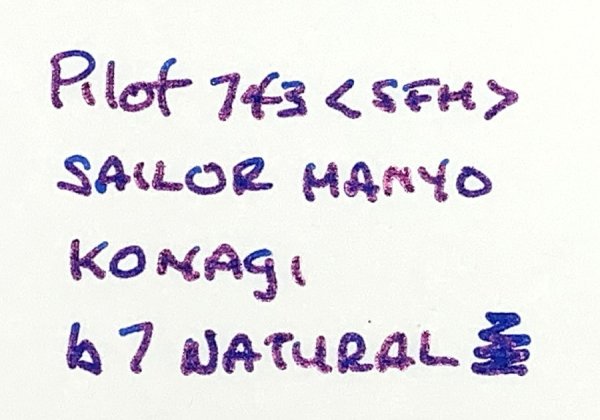 Pilot 743 <SFM>
SAILOR MANYO
KONAGI
67 NATURAL